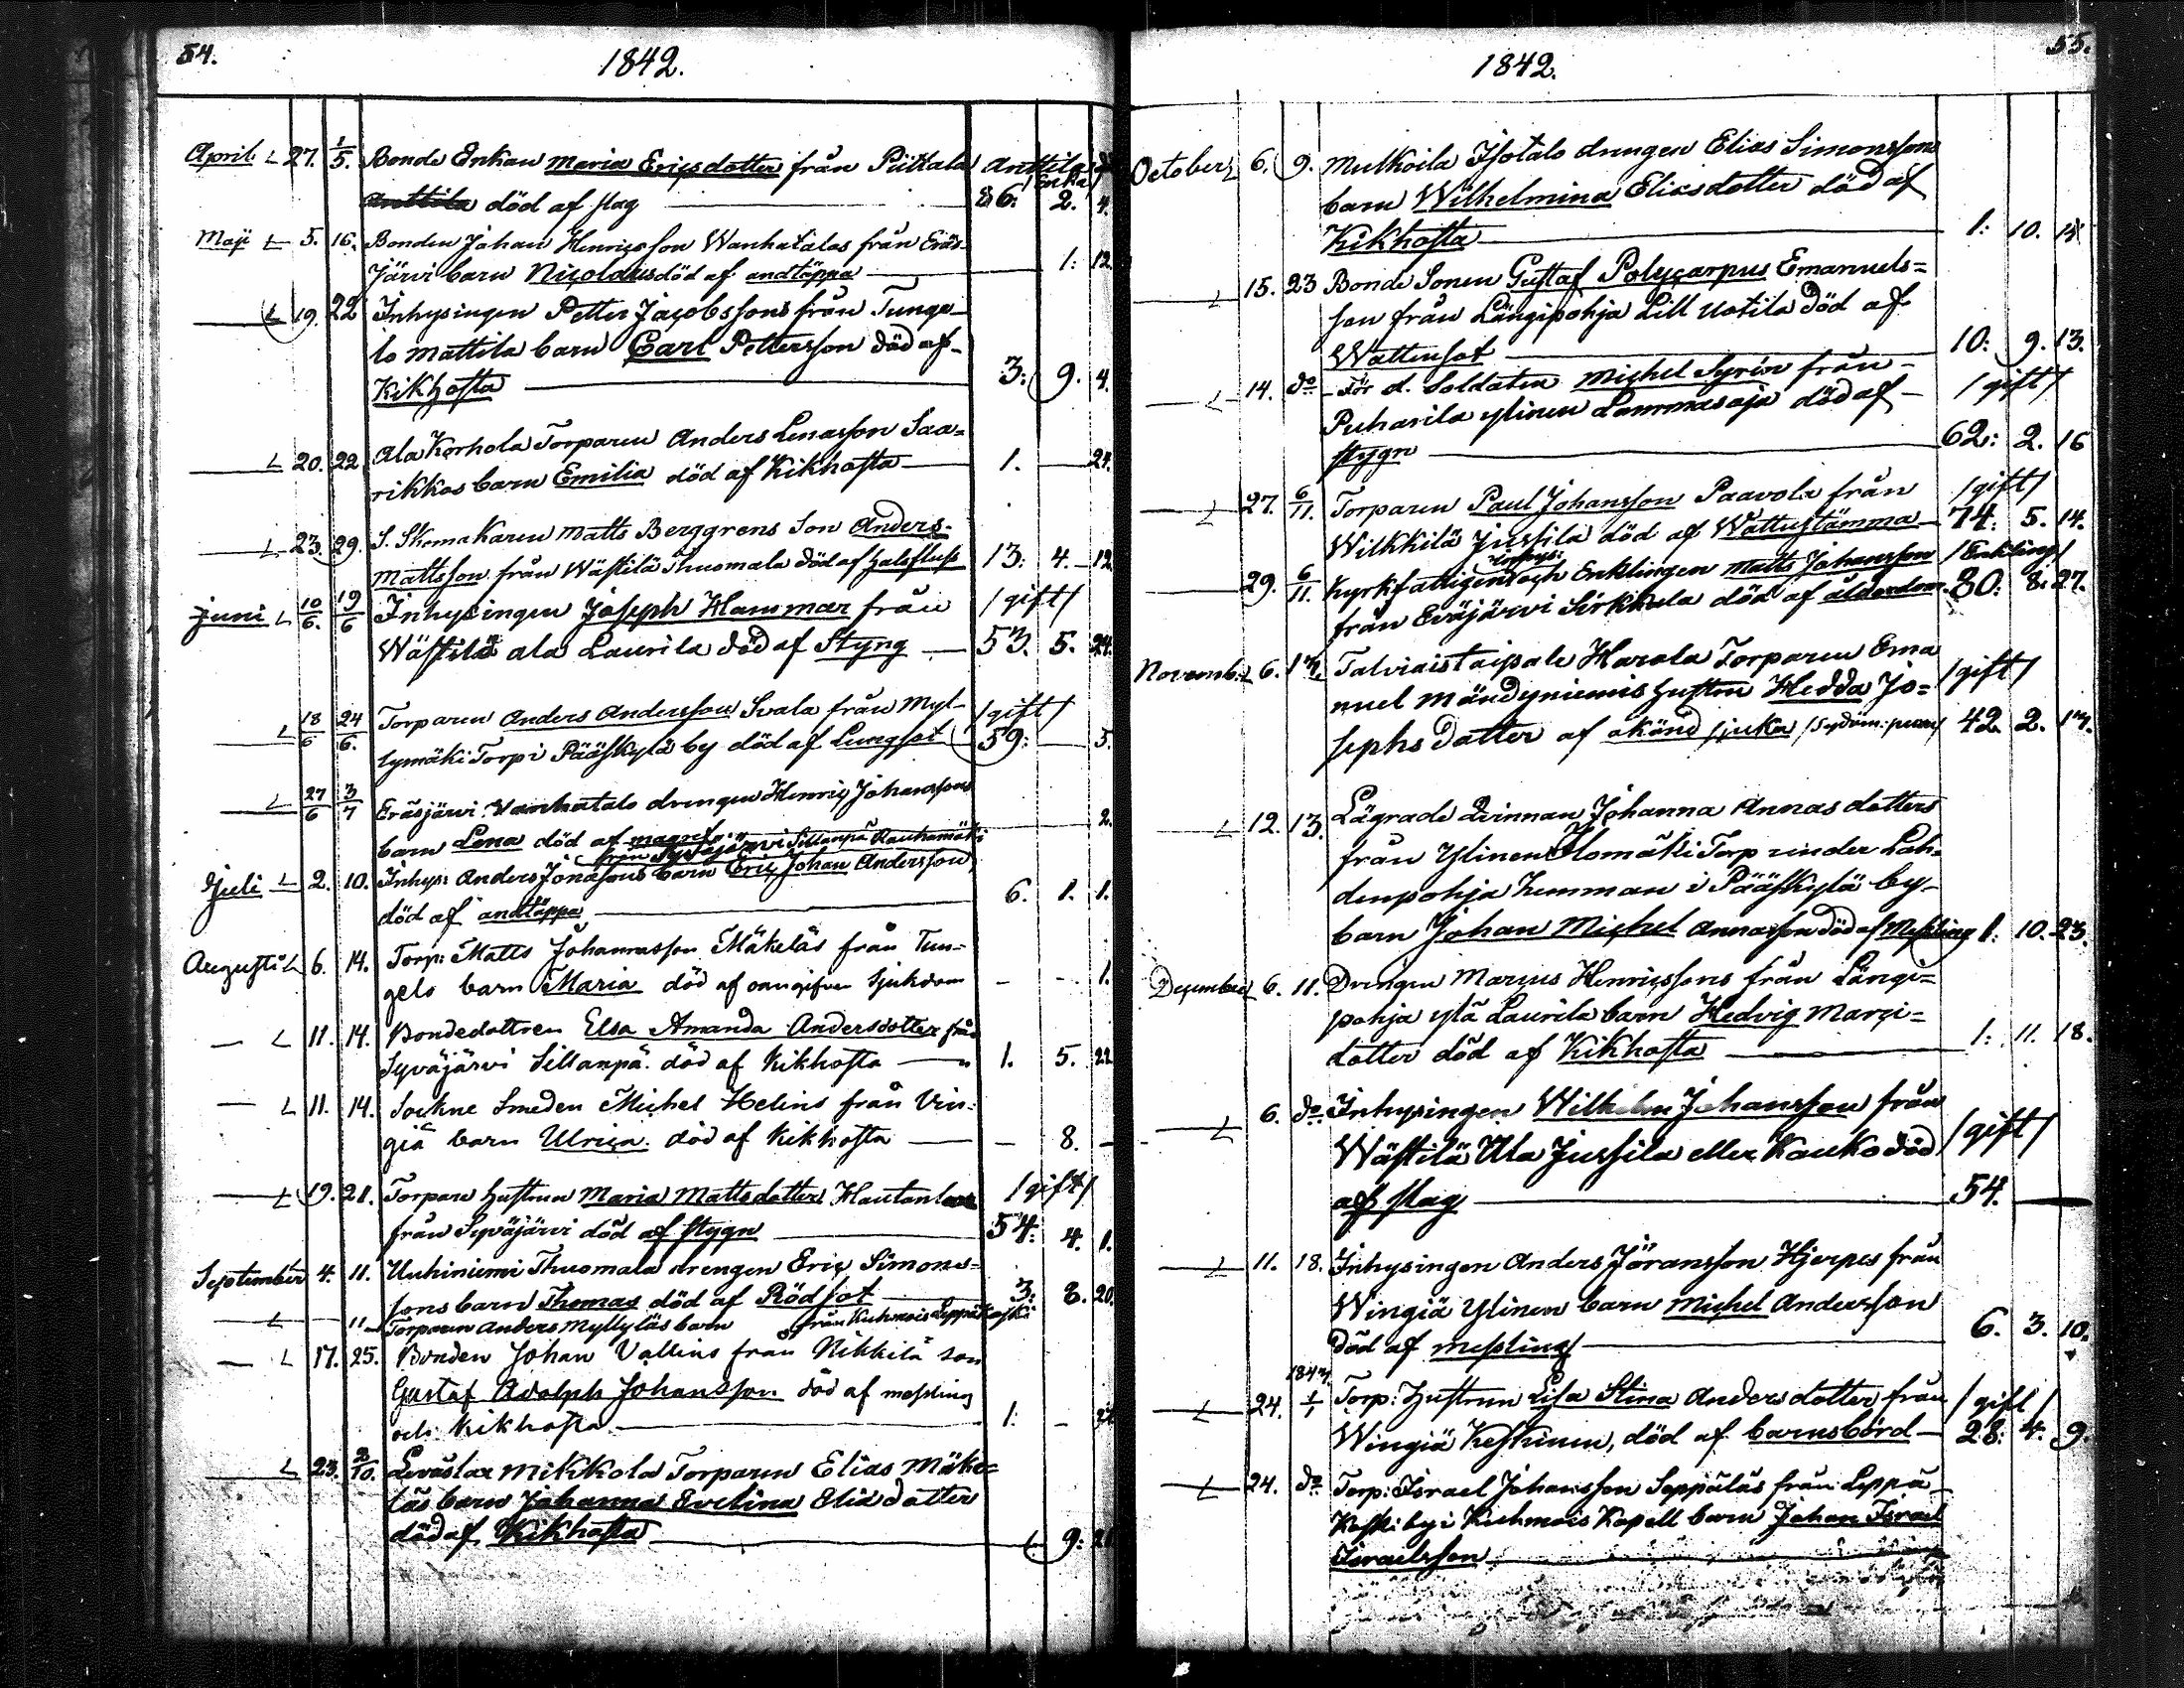 54.
1842.
April 27. 1/5. Bonde Enkan Maria Ericsdotter från Piittala Anttila
Anttila död af slag 86. /Enka/ 2. 4.
Maji 5. 16. Bonden Johan Henricsson Wanhatalos från Eräs-
järvi barn Nicolaus död af andtäppa 1. 12.
19. 22 Inhysingen Petter Jacobssons från Tunge-
lo Mattila barn Carl Pettersson död af
Kikhosta 3. 9. 4.
20. 22 Ala Korhola Torparen Anders Lenasson Saa-
rikkos barn Emilia död af Kikhosta 1. — 24.
23. 29. S. Skomakaren Matts Berggrens Son Anders
Mattsson från Wästilä Thuomala död af halsfluss 13. 4. 12
Juni 10/6. 19/6 Inhysingen Joseph Hammar från /gift/
Wästilä ala Laurila död af Styng 53. 5. 24.
18/6 24/6. Torparen Anders Andersson Svala från Myl- /gift/
lymäki Torp i Pääskylä by död af Lungsot 59. — 5.
27/6 3/7 Eräsjärvi Wanhatalo drengen Henric Johanssons
barn Lena död af 2.
från Syväjärvi Sillanpä Rauhamäki
Juli 2. 10. Inhys: Anders Jonassons barn Eric Johan Andersson
död af andtäppa 6. 1. 1.
Augusti 6. 14. Torp: Matts Johannsson Mäkeläs från Tun-
gelo barn Maria död af oangifven sjukdom — - 1.
11. 14. Bondedottren Elsa Amanda Andersdotter från
Syväjärvi Sillanpä död af Kikhosta 1. 5. 22
11. 14. Sockne Smeden Michel Helins från Vin-
giä barn Ulrica död af Kikhosta — 8. —
19. 21. Torpare hustrun Maria Mattsdotter /gift/
från Syväjärvi död af stygn 54. 4. 1.
September 4. 11. Uuhiniemi Thuomala drengen Eric Simons-
sons barn Thomas död af Rödsot 3. 8. 20.
— 11 Torparen Anders Myllyläs barn från Kuhmois Leppäkoski
17. 25. Bonden Johan Vallins från Nikkilä son
Gustaf Adolph Johansson död af messling
och Kikhosta 1. —
23. 2/10. Leväslax Mikkola Torparen Elias Mäke-
läs barn Johanna Evelina Elia dotter
död af Kikhosta 9. 21
55.
1842.
October 6. 9. Mulkoila Isotalo drengen Elias Simonssons
barn Wilhelmina Eliasdotter död af
Kikhosta 1. 10. 15
15. 23 Bonde Sonen Gustaf Polycarpus Emanuels-
son från Längipohja Lill Uotila död af
Wattensot 10. 9. 13.
14. do För d. Soldaten Michel Syrén från /gift/
Puharila ylinen Lammasoja död af
stygn 62. 2. 16
27. 6/11. Torparen Paul Johansson Paavola från /gift/
Wilkkilä Jussila död af Wattustämma 74. 5. 14.
inhys:
29. 6/11. Kyrkfattigen och Enklingen Matts Johansson /Enkling/
från Eväjärvi Sirkkala död af ålderdom 80. 8. 27.
Novemb. 6. 13. Talviaistaipale Harola Torparen Ema
nuel Mändyniemis hustru Hedda Jo- /gift/
sephs dotter af okänd sjuka 42. 2. 17.
12. 13. Lägrade Qvinnan Johanna Annas dotters
från Ylinen Holomäki Torp under Lah-
denpohja hemman i Pääskylä by
barn Johan Michel Annasson död af Messling 1. 10. 23.
December 6. 11. Drengen Marcus Henricssons från Längi-
pohja ylä Laurila barn Hedvig Marci-
dotter död af Kikhosta 1. 11. 18.
6. do Inhysingen Wilhelm Johansson från /gift/
Wästilä Ala Jussila eller Kauko död
af slag 54. —
11. 18. Inhysingen Anders Jöransson Hjerpes från
Wingiä Ylinen barn Michel Andersson
död af messling 6. 3. 10.
1843.
24. 1/1 Torp: Hustrun Lisa Stina Anders dotter från /gift/
Wingiä Keskinen, död af barnsbörd 28. 4. 9.
24. do Torp: Israel Johansson Seppäläs från Leppä-
koski by i Kuhmois Kapell barn Johan Israel
Israelsson